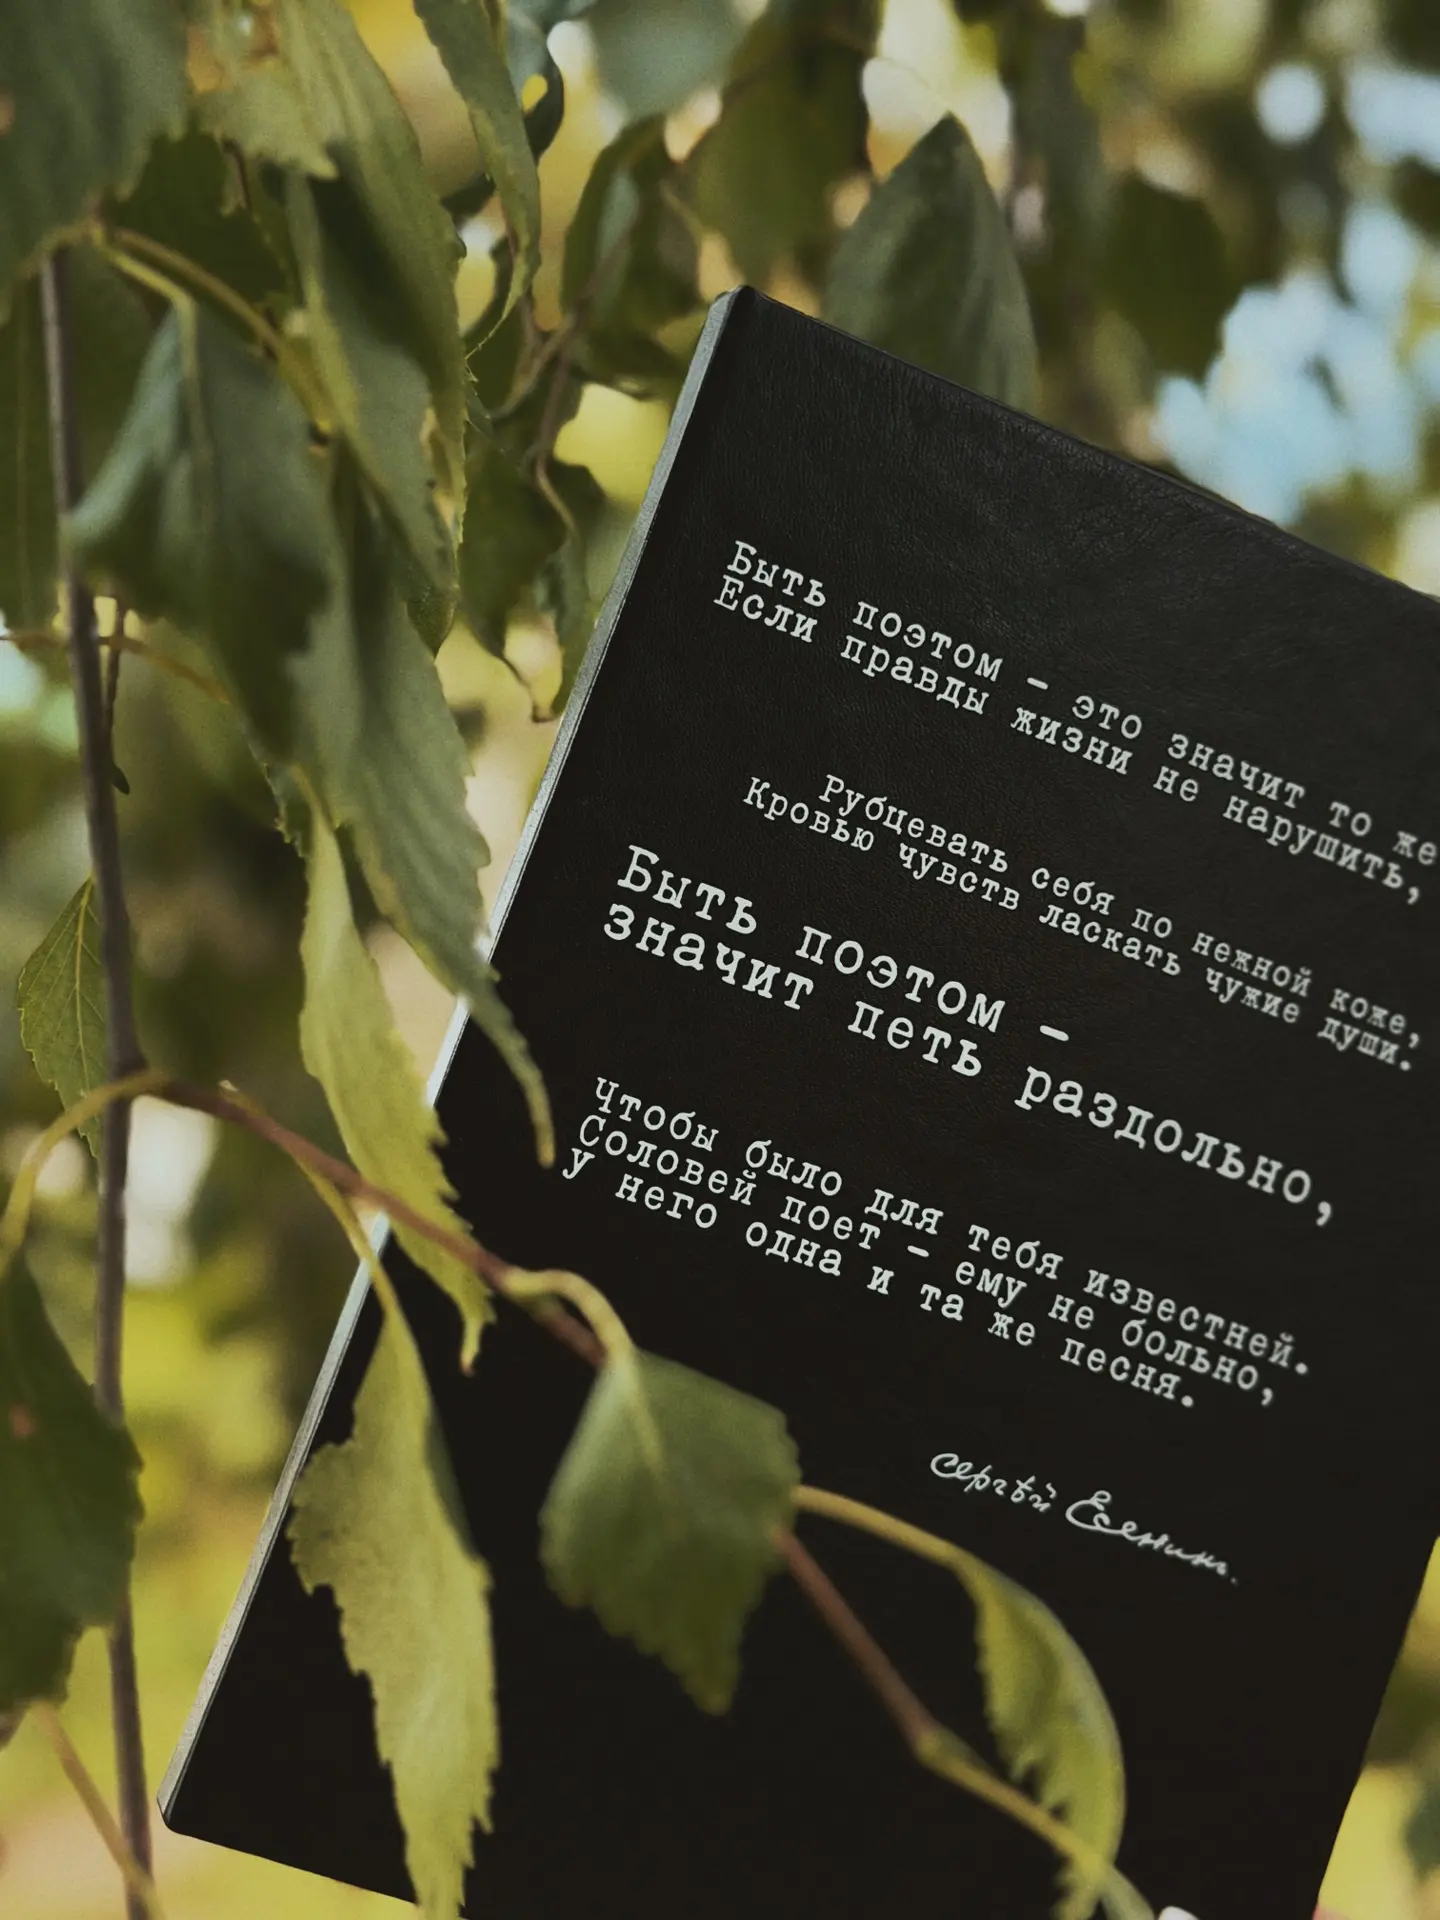 Быть поэтом – это значит то же
Если правды жизни не нарушить,
Рубцевать себя по нежной коже,
Кровью чувств ласкать чужие души.
Быть поэтом –
значит петь раздольно,
Чтобы было для тебя известней.
Соловей поет – ему не больно,
у него одна и та же песня.
Сергѣй Есенинъ.